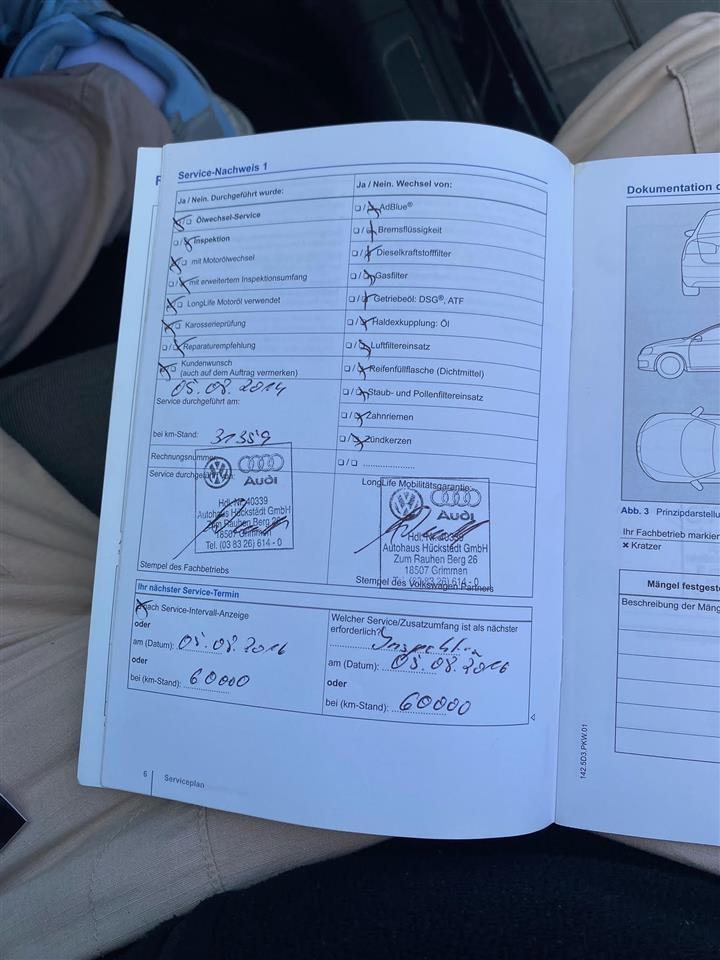 Service-Nachweis 1
Ja / Nein. Durchgeführt wurde:
❑ Ölwechsel-Service
❑ / Inspektion
❑ mit Motorölwechsel
❑ / mit erweitertem Inspektionsumfang
❑ LongLife Motoröl verwendet
❑ Karosserieprüfung
❑ / Reparaturempfehlung
❑ Kundenwunsch
(auch auf dem Auftrag vermerken)
05.08.2014
Service durchgeführt am:
bei km-Stand: 31359
Rechnungsnummer:
Service durchgeführt von:
Audi
Hdl. Nr. 40339
Autohaus Hückstädt GmbH
Zum Rauhen Berg 26
18507 Grimmen
Tel. (03 83 26) 614 - 0
Stempel des Fachbetriebs
Ja / Nein. Wechsel von:
❑ / AdBlue®
❑ / Bremsflüssigkeit
❑ / Dieselkraftstofffilter
❑ / Gasfilter
❑ / Getriebeöl: DSG®, ATF
❑ / Haldexkupplung: Öl
❑ / Luftfiltereinsatz
❑ / Reifenfüllflasche (Dichtmittel)
❑ / Staub- und Pollenfiltereinsatz
❑ / Zahnriemen
❑ / Zündkerzen
❑ / ❑ ....................
LongLife Mobilitätsgarantie:
Audi
Hdl. Nr. 40339
Autohaus Hückstädt GmbH
Zum Rauhen Berg 26
18507 Grimmen
Tel. (03 83 26) 614 - 0
Stempel des Volkswagen Partners
Ihr nächster Service-Termin
nach Service-Intervall-Anzeige
oder
am (Datum): 05.08.2016
oder
bei (km-Stand): 60000
Welcher Service/Zusatzumfang ist als nächster
erforderlich? Inspektion
am (Datum): 05.08.2016
oder
bei (km-Stand): 60000
6 Serviceplan
Dokumentation
Abb. 3 Prinzipdarstellu
Ihr Fachbetrieb markier
× Kratzer
Mängel festgeste
Beschreibung der Mäng
142.5D3.PKW.01